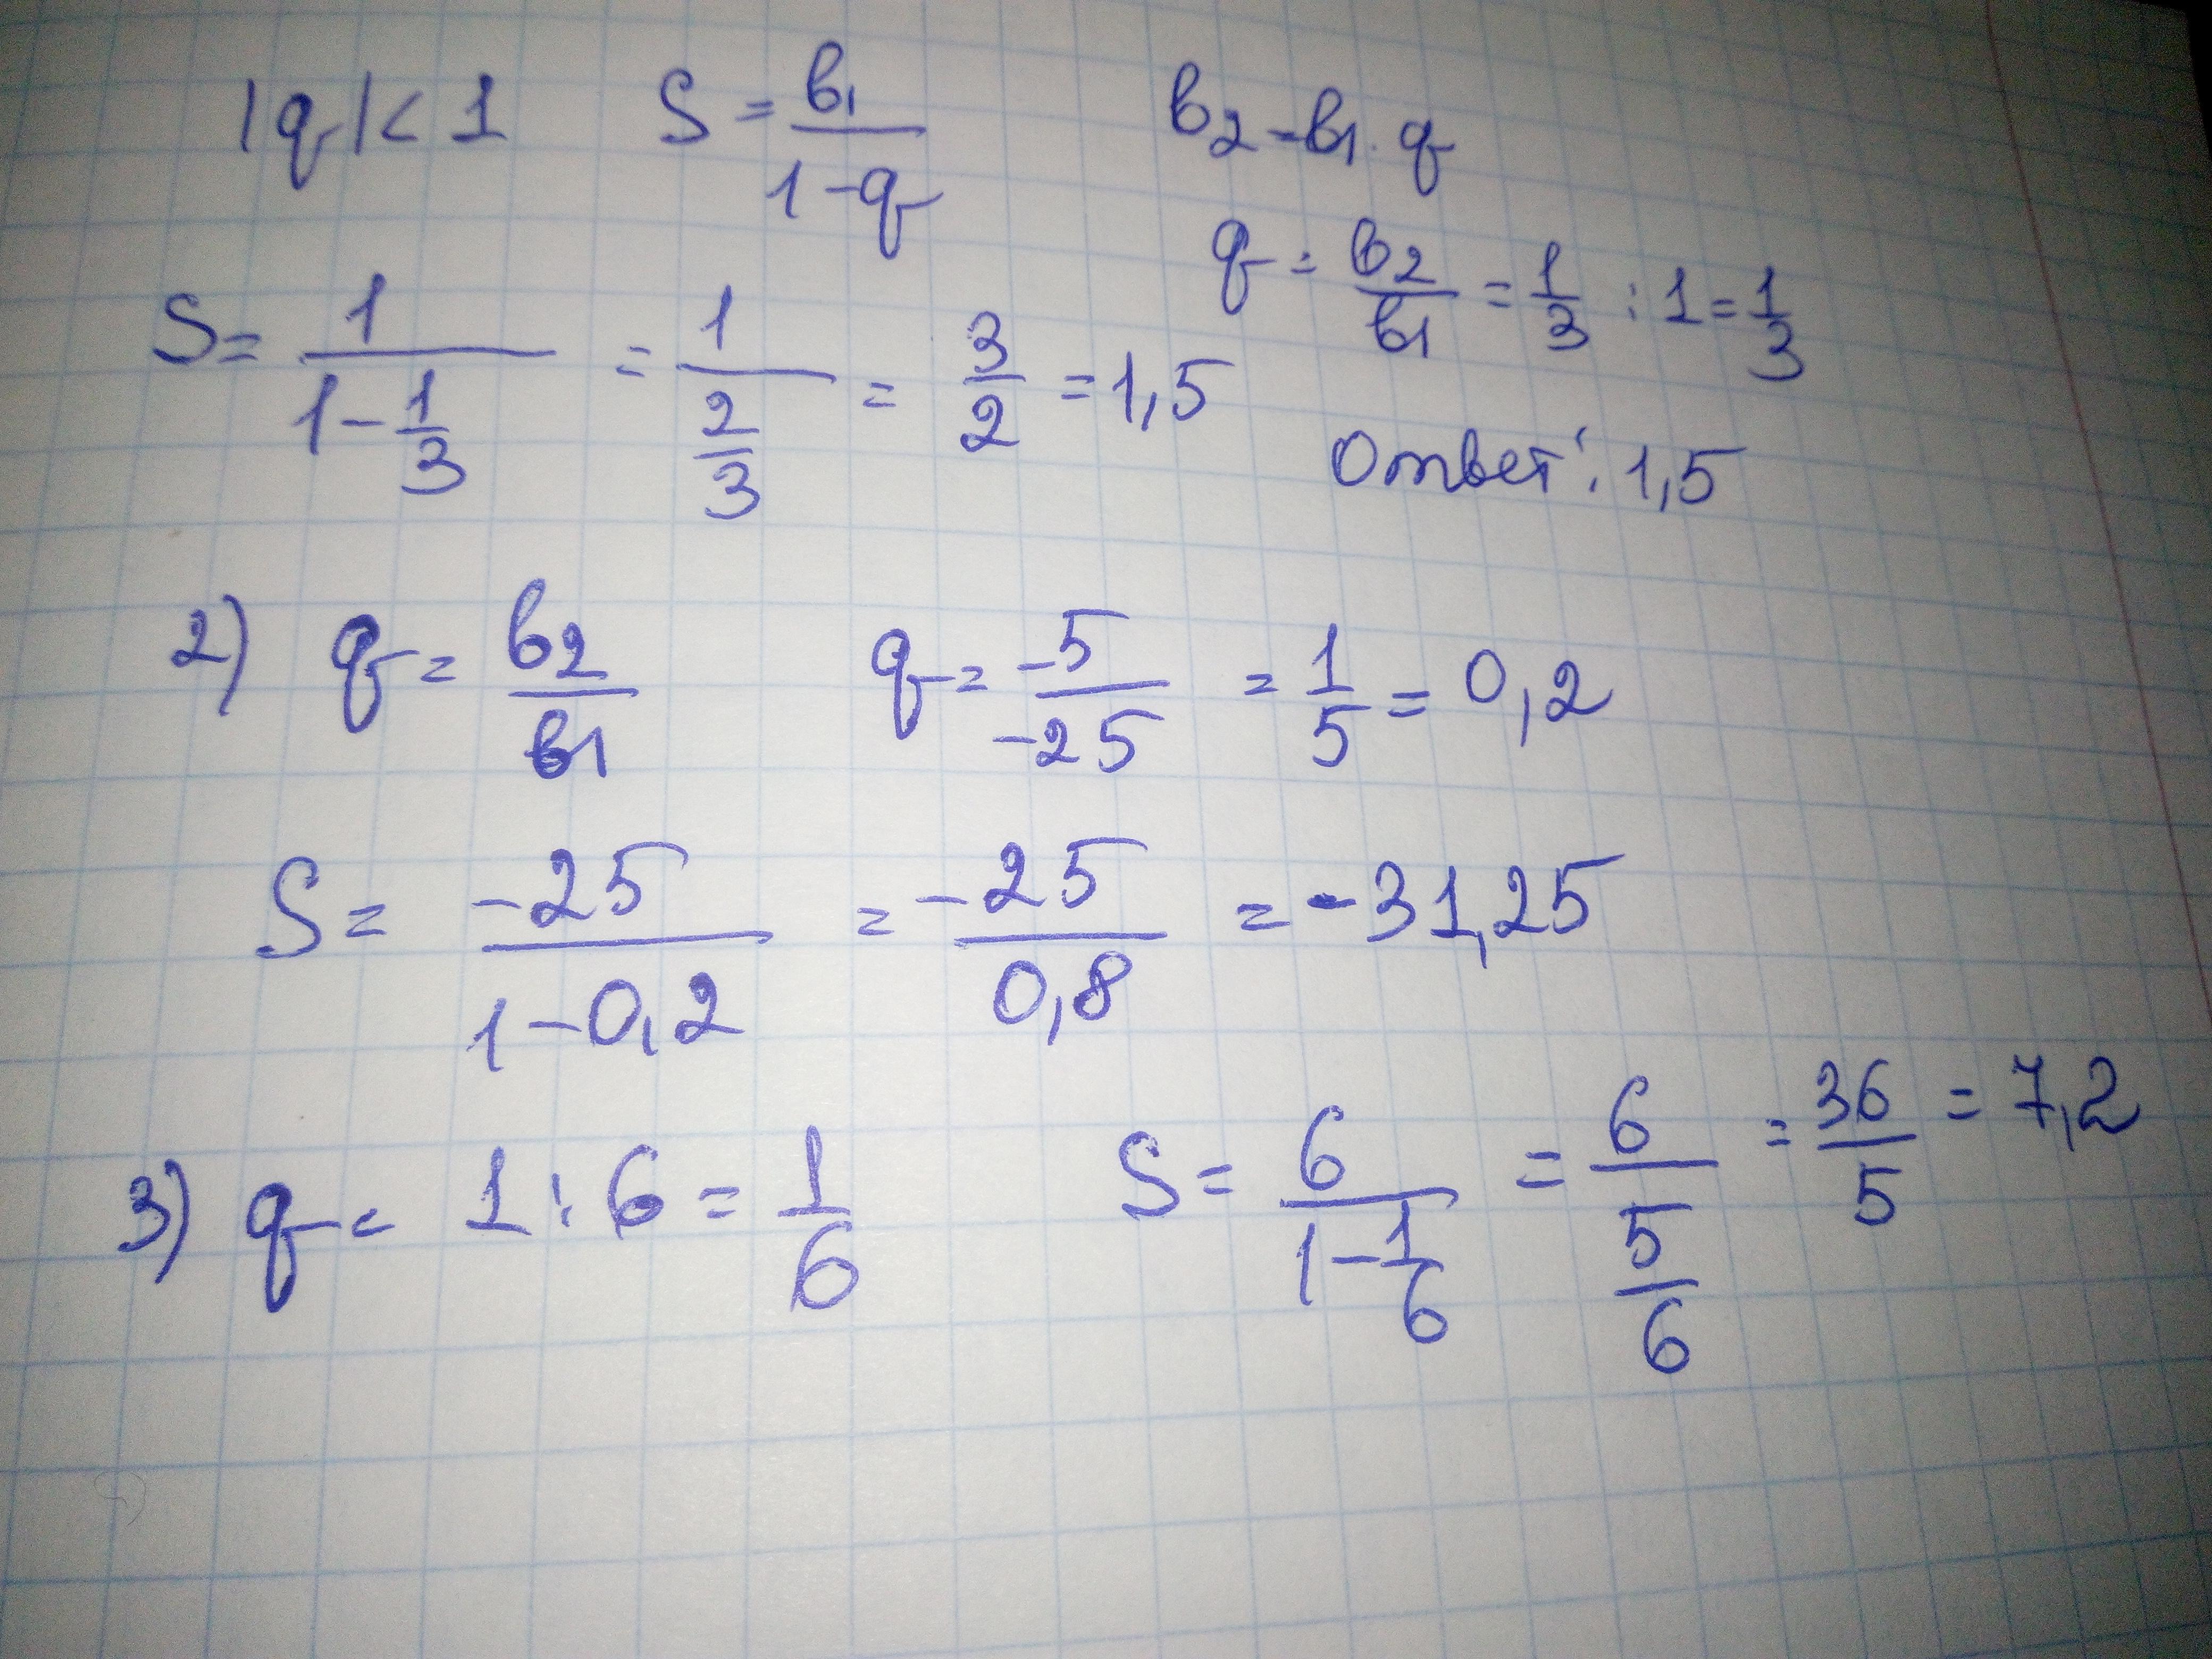 |q|< 1 S = в₁/(1-q) в₂ = в₁ · q
q = в₂/в₁ = 1/3 : 1 = 1/3
S = 1/(1-1/3) = 1/(2/3) = 3/2 = 1,5
Ответ: 1,5
2) q = в₂/в₁ q = -5/-25 = 1/5 = 0,2
S = -25/(1-0,2) = -25/0,8 = -31,25
3) q = 1 : 6 = 1/6 S = 6/(1-1/6) = 6/(5/6) = 36/5 = 7,2